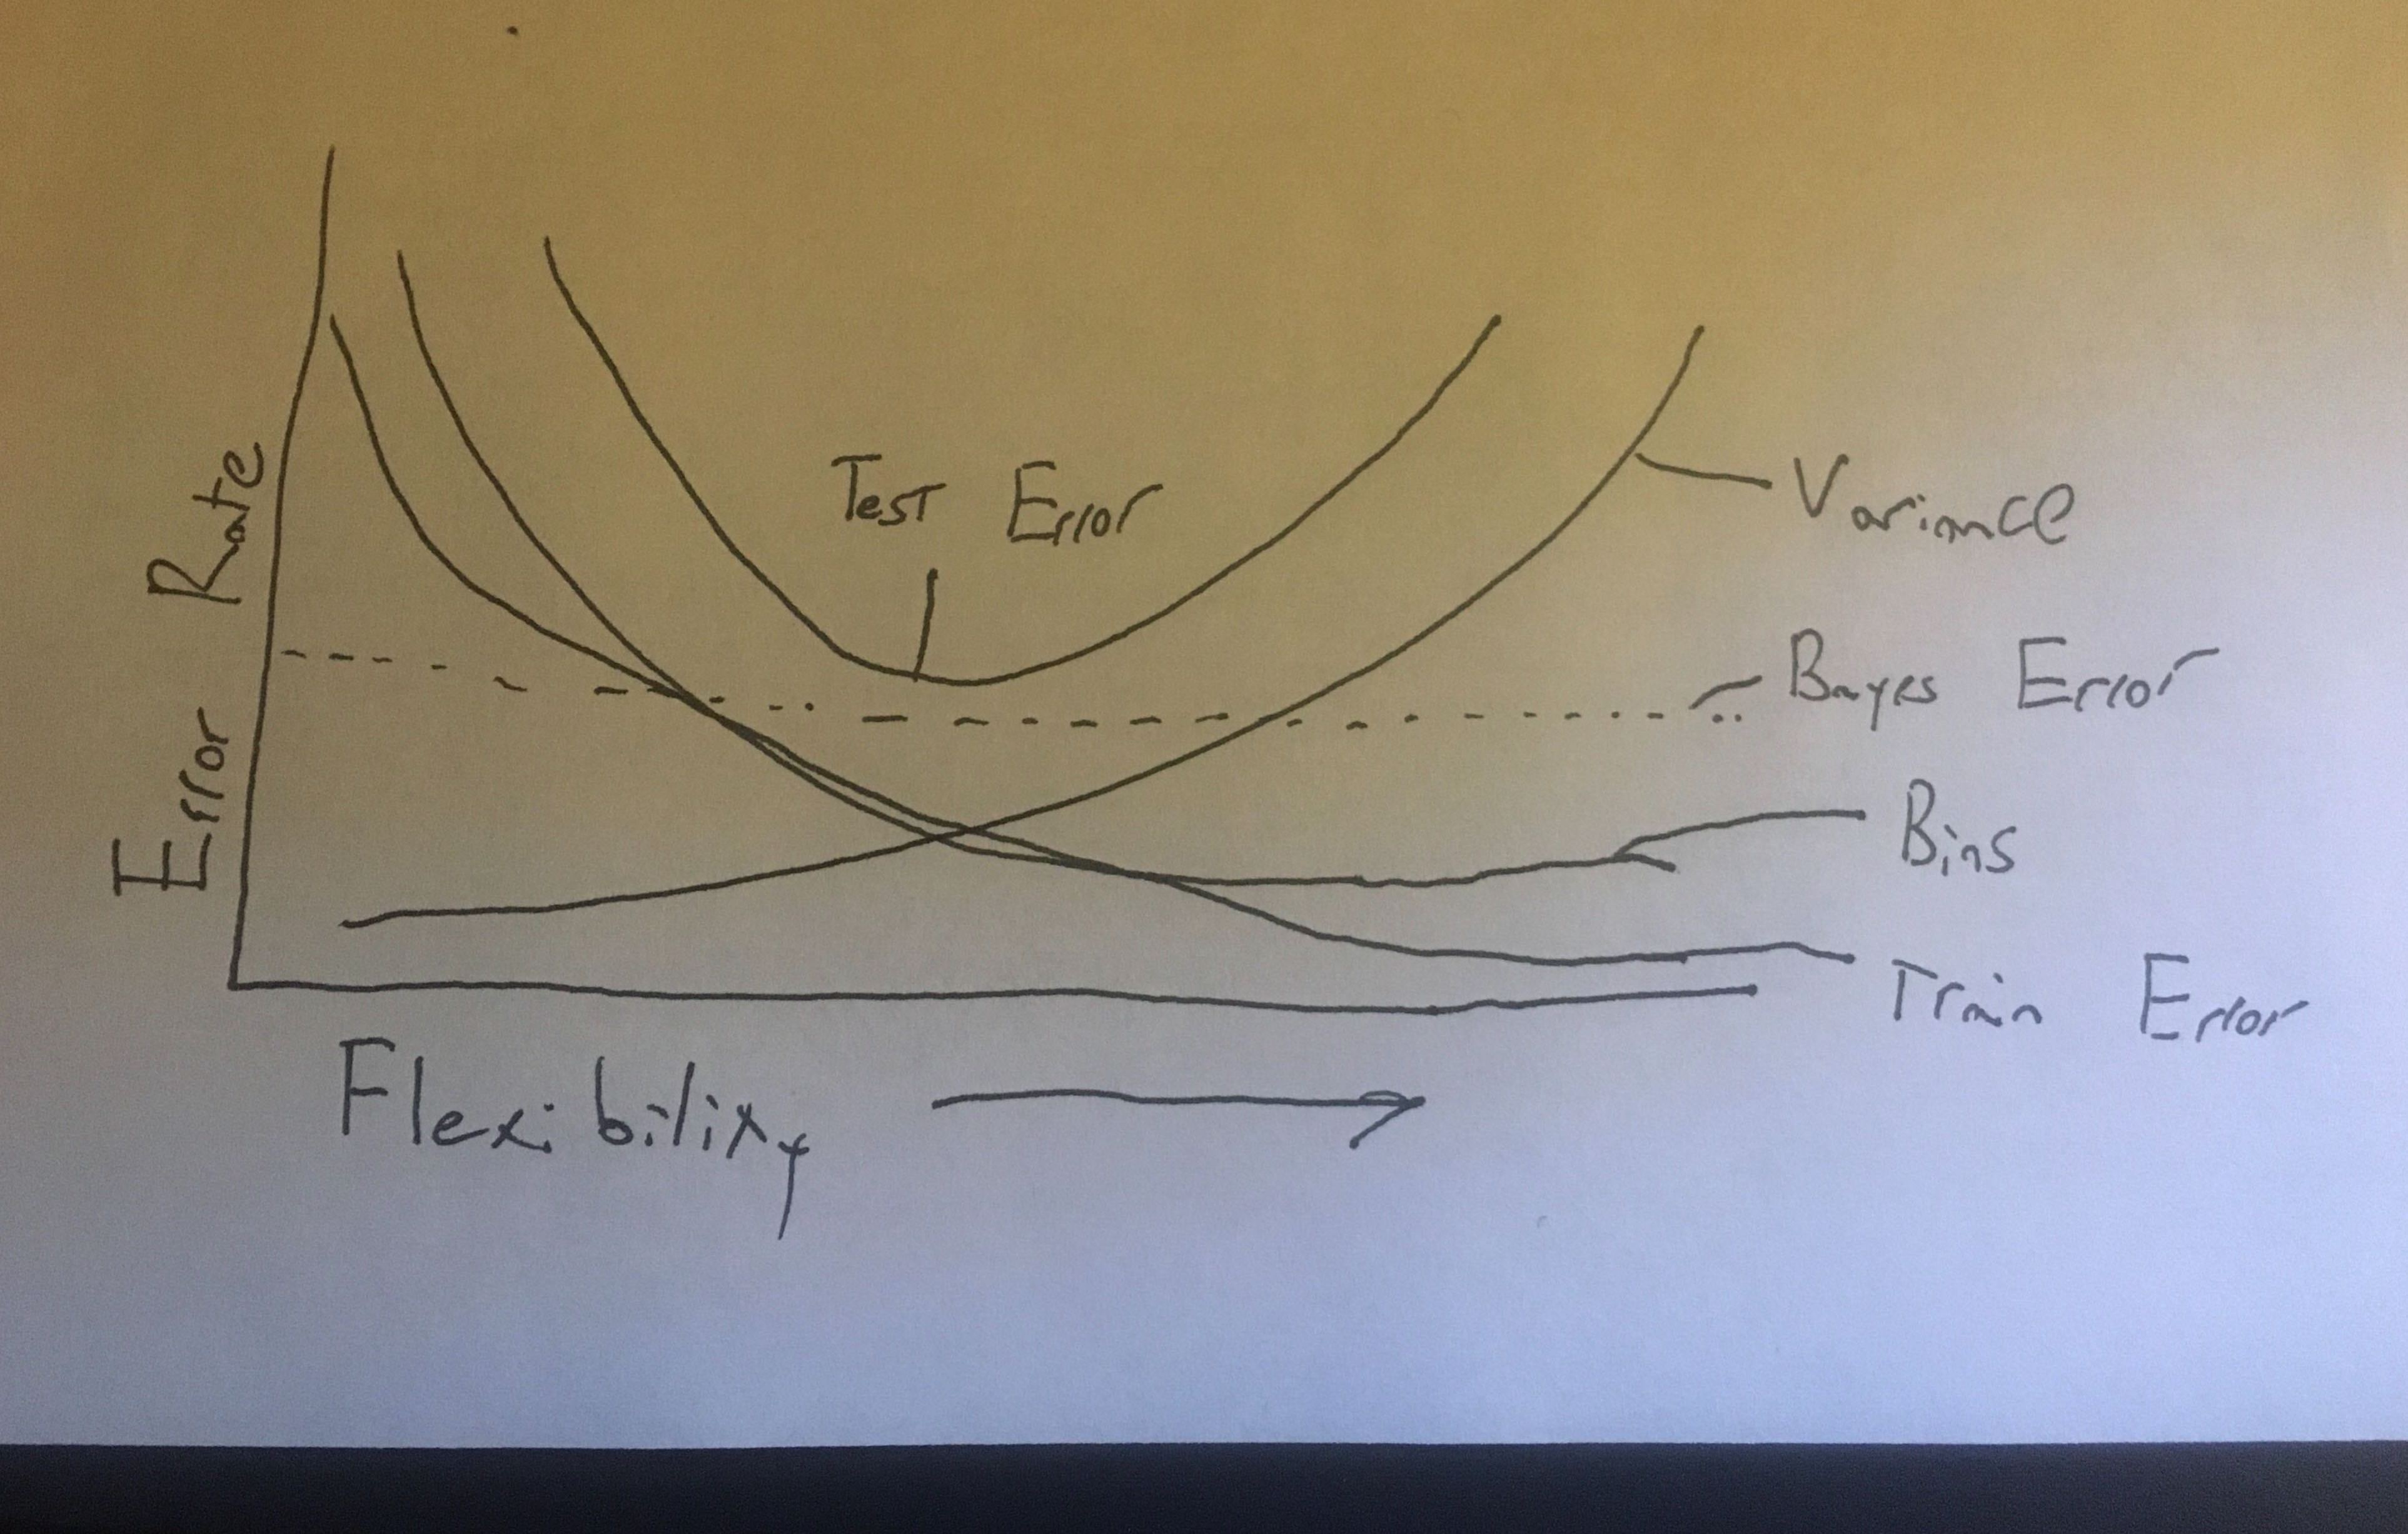 Error Rate
Test Error
Variance
Bayes Error
Bias
Train Error
Flexibility